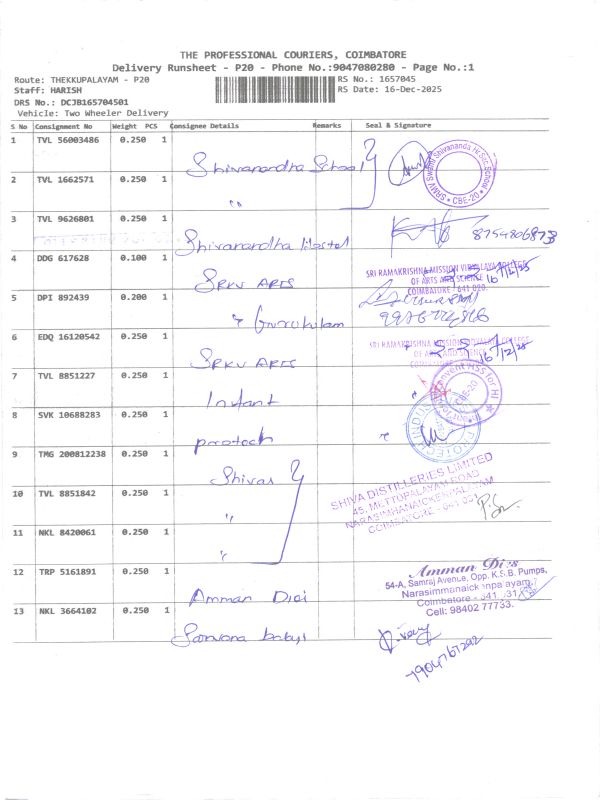 THE PROFESSIONAL COURIERS, COIMBATORE
Delivery Runsheet - P20 - Phone No.:9047080280 - Page No.:1
Route: THEKKUPALAYAM - P20
RS No.: 1657045
Staff: HARISH
RS Date: 16-Dec-2025
DRS No.: DCJB165704501
Vehicle: Two Wheeler Delivery
S No Consignment No Weight PCS Consignee Details Remarks Seal & Signature
1 TVL 56003486 0.250 1 Shivanandha School
SRMV Swami Shivananda Hr.Sec.School CBE-20
2 TVL 1662571 0.250 1 "
3 TVL 9626801 0.250 1 Shivanandha Hostel 8754806873
4 DDG 617628 0.100 1 SRKV ARTS
SRI RAMAKRISHNA MISSION VIDYALAYA COLLEGE
OF ARTS AND SCIENCE 16/12/25
COIMBATORE - 641 020.
5 DPI 892439 0.200 1 " Gurukulam
6 EDQ 16120542 0.250 1 SRKV ARTS
SRI RAMAKRISHNA MISSION VIDYALAYA COLLEGE
OF ARTS AND SCIENCE 16/12/25
7 TVL 8851227 0.250 1 Infant
Convent HSS for HI CBE-20
8 SVK 10688283 0.250 1 protech
PROTECH INDUS
9 TMG 200812238 0.250 1 Shivas
SHIVA DISTILLERIES LIMITED
45, METTUPALAYAM ROAD
NARASIMHANAICKENPALAYAM
COIMBATORE - 641 031
10 TVL 8851842 0.250 1 "
11 NKL 8420061 0.250 1 "
12 TRP 5161891 0.250 1 Amman Dies
Amman Dies
54-A, Samraj Avenue, Opp. K.S.B. Pumps,
Narasimmanaickenpalayam,
Coimbatore - 641 031.
Cell: 98402 77733.
13 NKL 3664102 0.250 1
7904767292